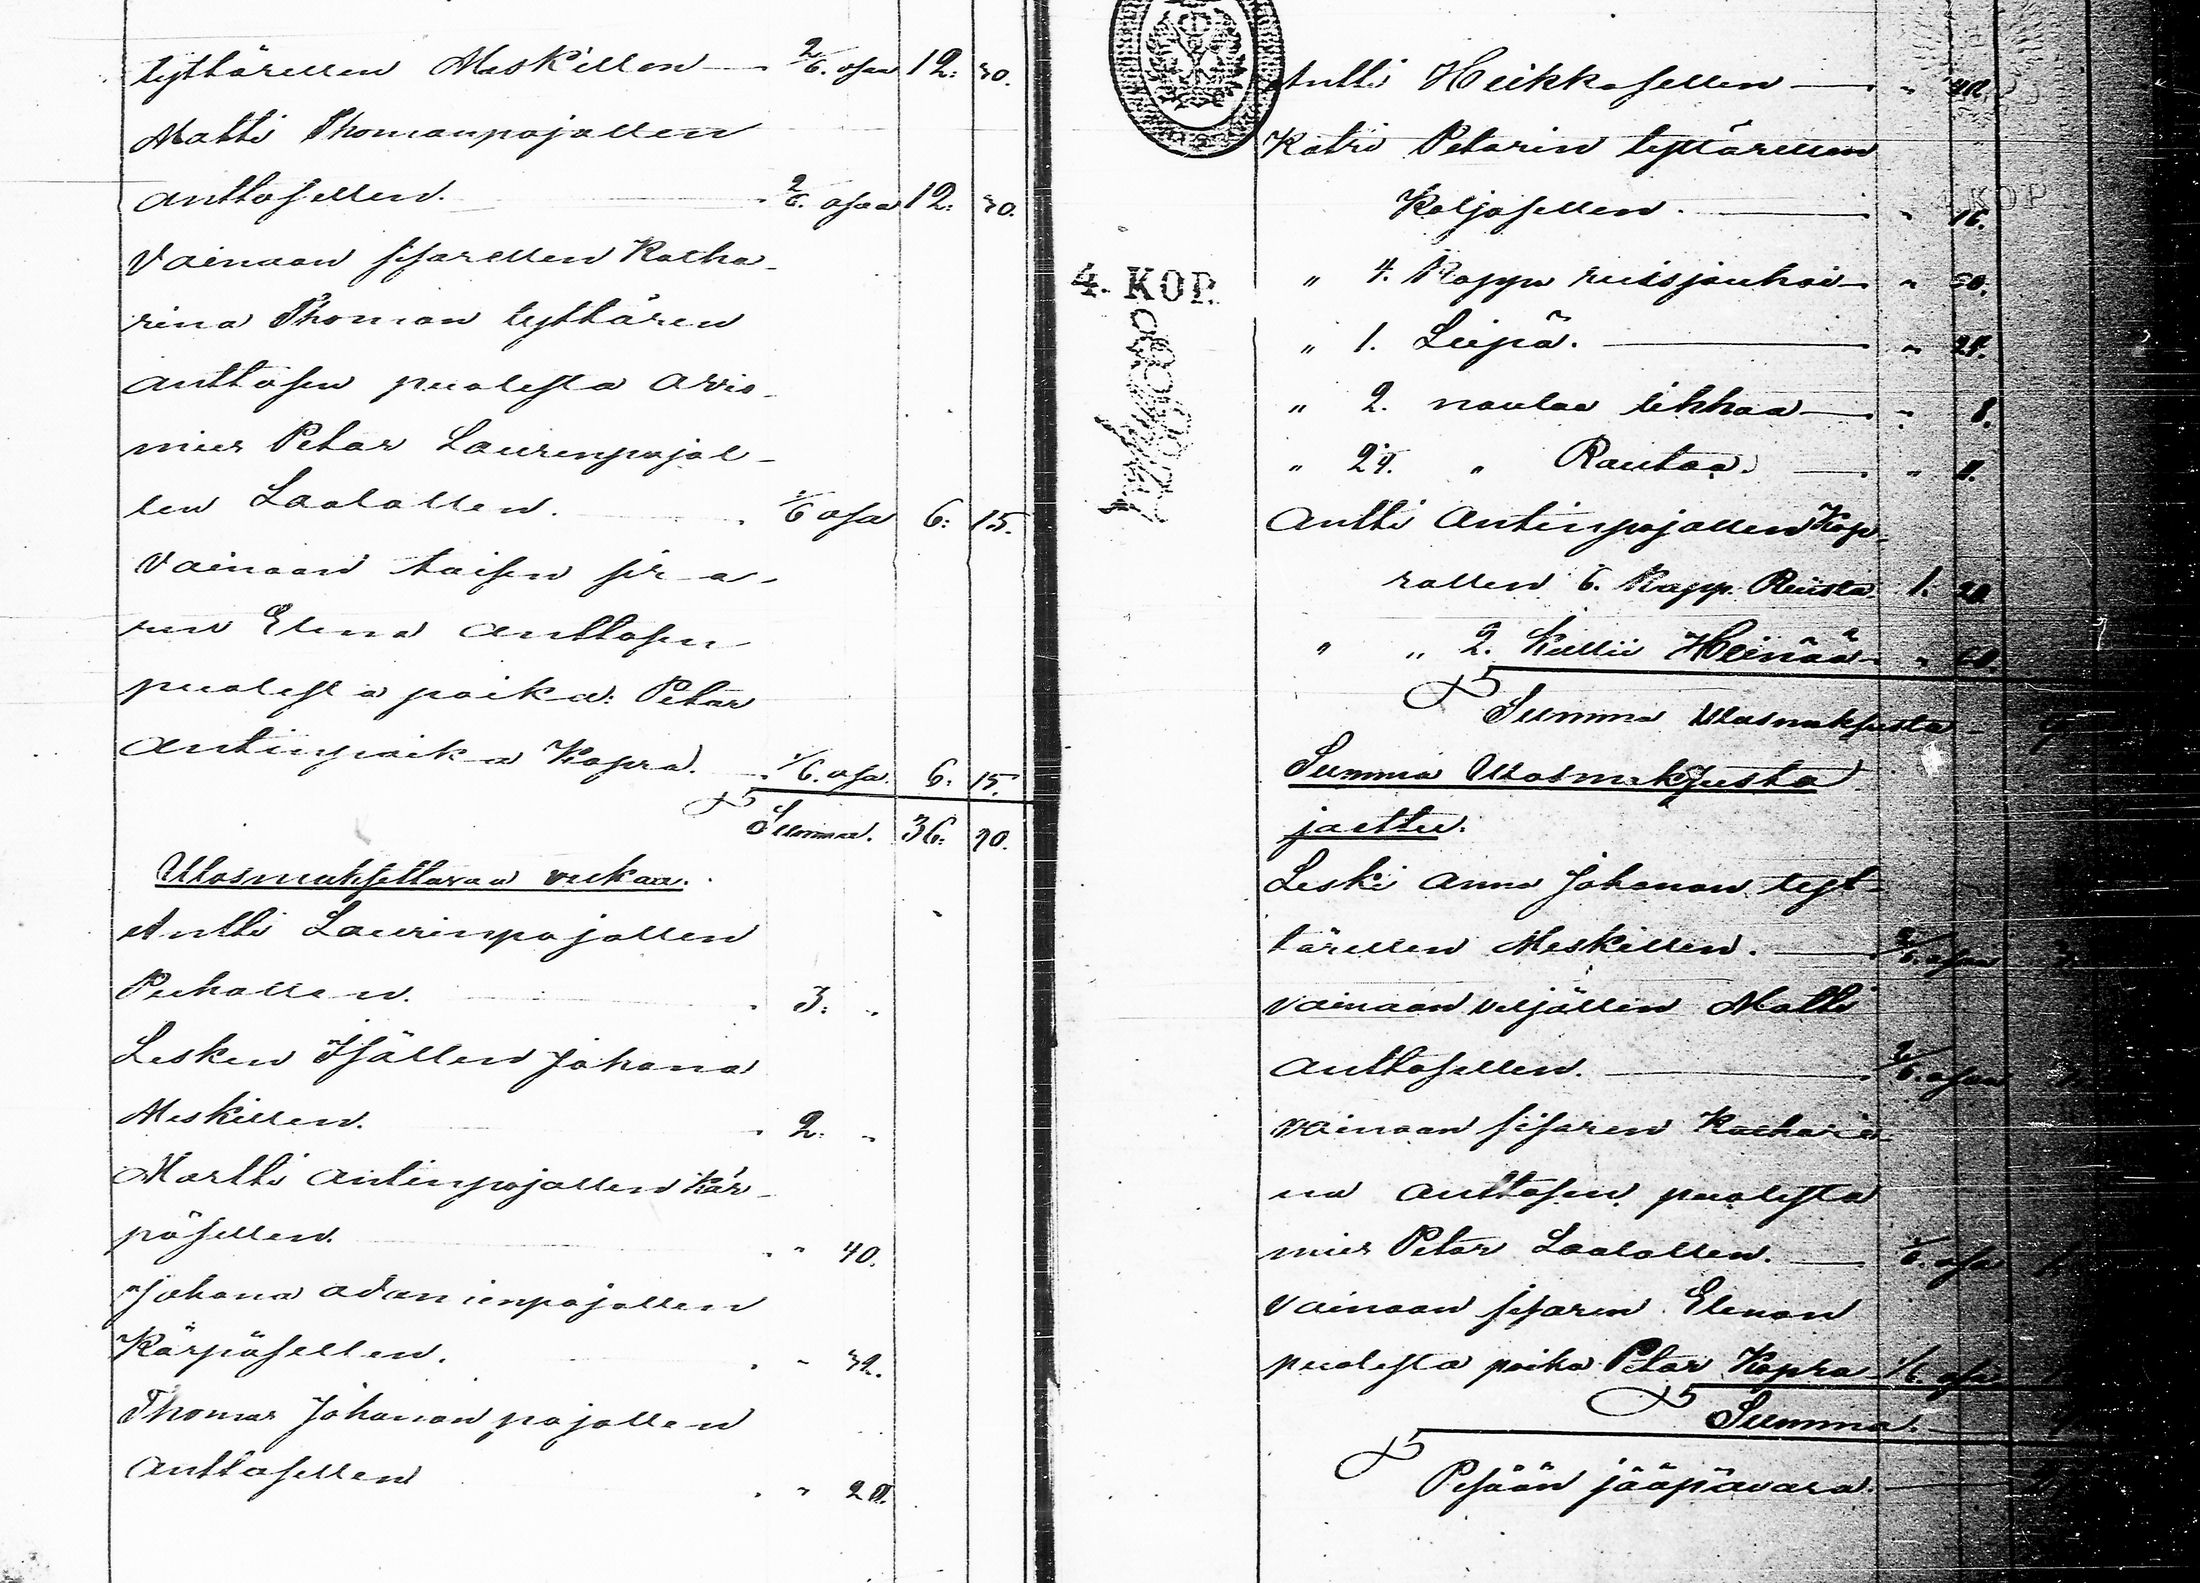 tyttärellen Meskillen — 2/6. osaa 12: 30.
Matti Thomanpojallen
Anttosellen. 2/6. osaa 12: 30.
Vainaan sisarellen Katha-
rina Thoman tyttären
Anttosen puolesta avio-
mies Petar Laurenpojal-
len Laalallen. 1/6 osa 6: 15.
Vainaan toisen sisa-
ren Elena Anttosen
puolesta poika: Petar
Antinpoika Kopra. 1/6. osa 6: 15.
Summa. 36: 90.
Ulosmaksettavaa velkaa.
Antti Laurinpojallen
Puhallen. 3: "
Lesken Isällen Johana
Meskillen. 2: "
Martti Antinpojallen Kär-
päsellen. " 40.
Johana Adaminpojallen
Kärpäsellen. " 32.
Thomas Johanan pojallen
Anttosellen " 20.
4. KOP.
Antti Heikkosellen — "
Katri Petarin tyttärellen
Koljosellen. — " 16.
" 4. Kappa ruisjauhoi — " 60.
" 1. Leipä. — " 24.
" 2. naulaa lihhaa — " 8.
" 24. " Rautaa. — "
Antti Antinpojallen Kop-
rallen 6. Kapp. Ruista 1. 20.
" " 2. Kullii Heinää — " 60.
Summa Ulosmaksusta
Summa Ulosmaksusta
jaettu.
Leski Anna Johanan tyt-
tärellen Meskillen. — 2/6. osaa
vainaan veljällen Matti
Anttosellen. — 2/6. osaa
vainaan sisaren Kathari-
na Anttosen puolesta
mies Petar Laalallen. — 1/6. osa
Vainaan sisaren Elenan
puolesta poika Petar Kopra 1/6. osa
Summa.
Pesään jääpävara. —
KOP